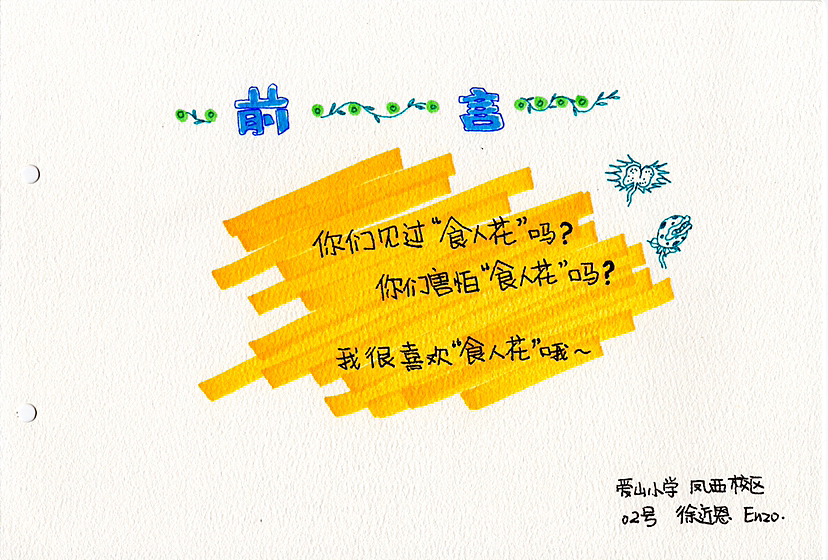 前言
你们见过“食人花”吗?
你们害怕“食人花”吗?
我很喜欢“食人花”哦~
爱山小学 凤西校区
02号 徐近恩 Enzo.